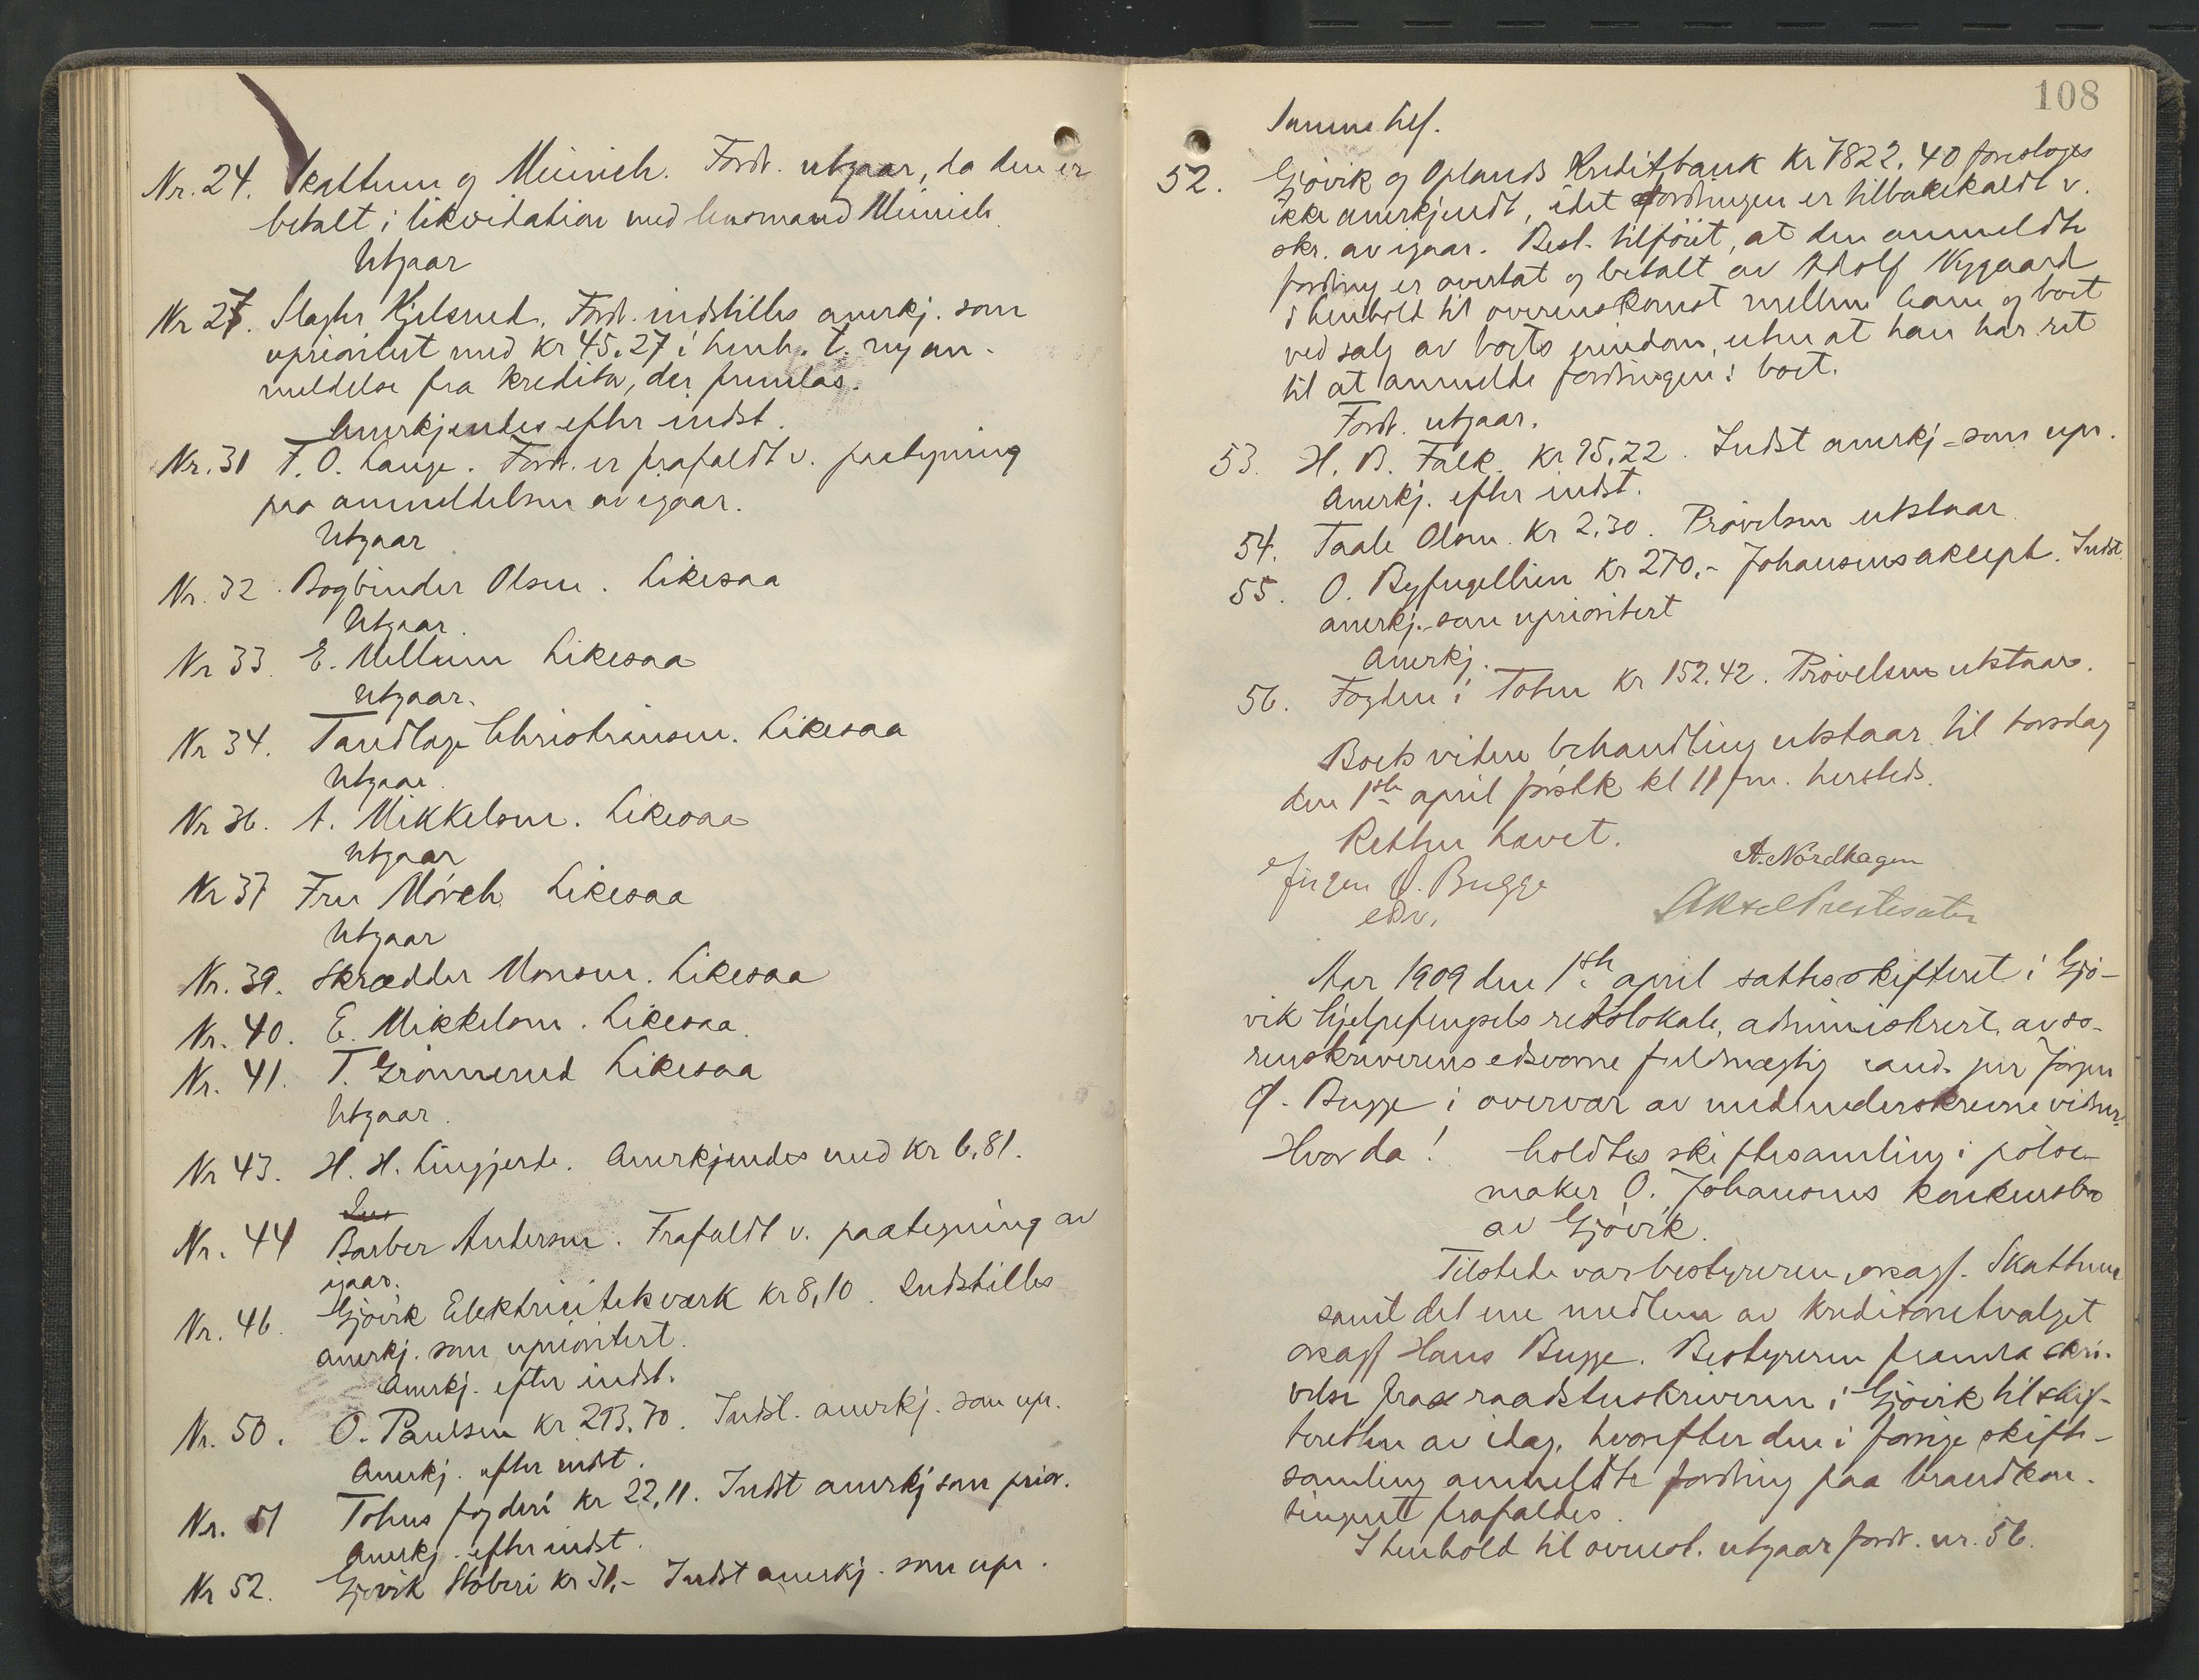 Nr. 24. Skattum og Minich. Fordr. utgaar, da den er
betalt i likvidation med lensmand Minich.
Utgaar
Nr 27. Slagter Kjelsrud. Fordr. indstilles anerkj. som
uprioritert med kr 45.27 i henh. t. ny an-
meldelse fra kreditor, der fremlas.
Anerkjendes efter indst.
Nr. 31 T. O. Lange. Fordr. er frafaldt v. paategning
paa anmeldelsen av igaar.
Utgaar
Nr. 32. Bogbinder Olsen. Likesaa
Utgaar.
Nr 33. E. Mellum Likesaa
Utgaar.
Nr 34. Tandlæge Christiansen. Likesaa
Utgaar.
Nr 36. A. Mikkelsen. Likesaa
Utgaar
Nr 37 Fru Mörch Likesaa
Utgaar
Nr. 39. Skrædder Monsen. Likesaa
Nr. 40. E. Mikkelsen. Likesaa.
Nr. 41. T. Grönnerud Likesaa
Utgaar.
Nr 43. H. H. Lingjerde. Anerkjendes med kr 6,81.
Nr. 44 Barber Andersen. Frafaldt v. paategning av
igaar.
Nr. 46. Gjövik Elektricitetsværk kr 8,10. Indstilles
anerkj. som uprioritert.
Anerkj. efter indst.
Nr. 50. O. Paulsen kr 293.70. Indst. anerkj. som upr.
Anerkj. efter indst.
Nr. 51 Totens fogderi kr 22,11. Indst anerkj som prior.
Anerkj. efter indst.
Nr 52. Gjövik Stöberi kr 31,- Indst anerkj. som upr.
108
Samme hef.
52. Gjövik og Oplands Kreditbank kr 7822.40 foreslages
ikke anerkjendt, idet fordringen er tilbakekaldt v.
skr. av igaar. Best. tilföiet, at den anmeldte
fordring er overtat og betalt av Adolf Nygaard
i henhold til overenskomst mellem ham og boet
ved salg av boets eiendom, uten at han har ret
til at anmelde fordringen i boet.
Fordr. utgaar.
53. H. B. Falk. kr 95,22. Indst anerkj. som upr.
Anerkj. efter indst.
54. Taale Olsen. kr 2,30. Prövelsen utstaar
55. O. Byfuglien kr 270,- Johansens aksept. Indst.
anerkj. som uprioritert
Anerkj.
56. Fogden i Toten kr 152.42. Prövelsen utstaar.
Boets videre behandling utstaar til torsdag
den 1ste april förstk kl 11 fm. hersteds.
Retten hævet.
Jörgen J. Bugge
edsv.
A. Nordhagen
Aksel Prestesæter
Aar 1909 den 1ste april sattes skifteret i Gjö-
vik hjelpefengsels retslokale, administrert av so-
renskriverens edsvorne fuldmægtig cand. jur Jörgen
J. Bugge i overvær av medunderskrevne vidner.
Hvor da! holdtes skiftesamling i pölse-
maker O. Johansens konkursbo
av Gjövik.
Tilstede var bestyreren, o.r.sagf. Skattum
samt det ene medlem av kreditorutvalget
o.r.sagf Hans Bugge. Bestyreren fremla skri-
velse fra raadstuskriveren i Gjövik til skif-
teretten av idag, hvorefter den i forrige skifte-
samling anmeldte fordring paa brandkon-
tingent frafaldes.
I henhold til ovenst. utgaar fordr. nr. 56.